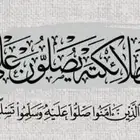 ملائكته يصلون عل
الذين ءامنوا صلوا عليه وسلموا تسل